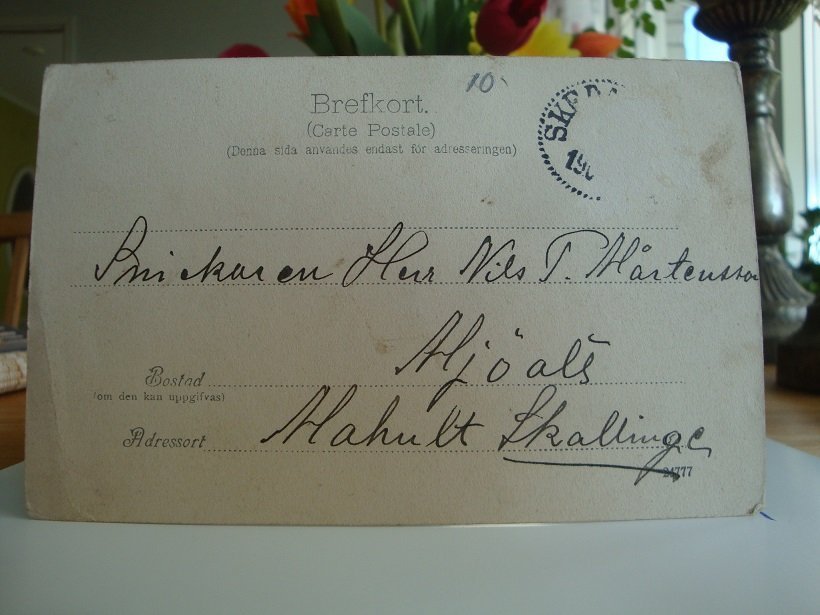 10
Brefkort.
(Carte Postale)
(Denna sida användes endast för adresseringen)
190
Snickaren Herr Nils T. Mårtensson
Mjöals
Bostad
(om den kan uppgifvas)
Mahult Skallinge
Adressort
24777